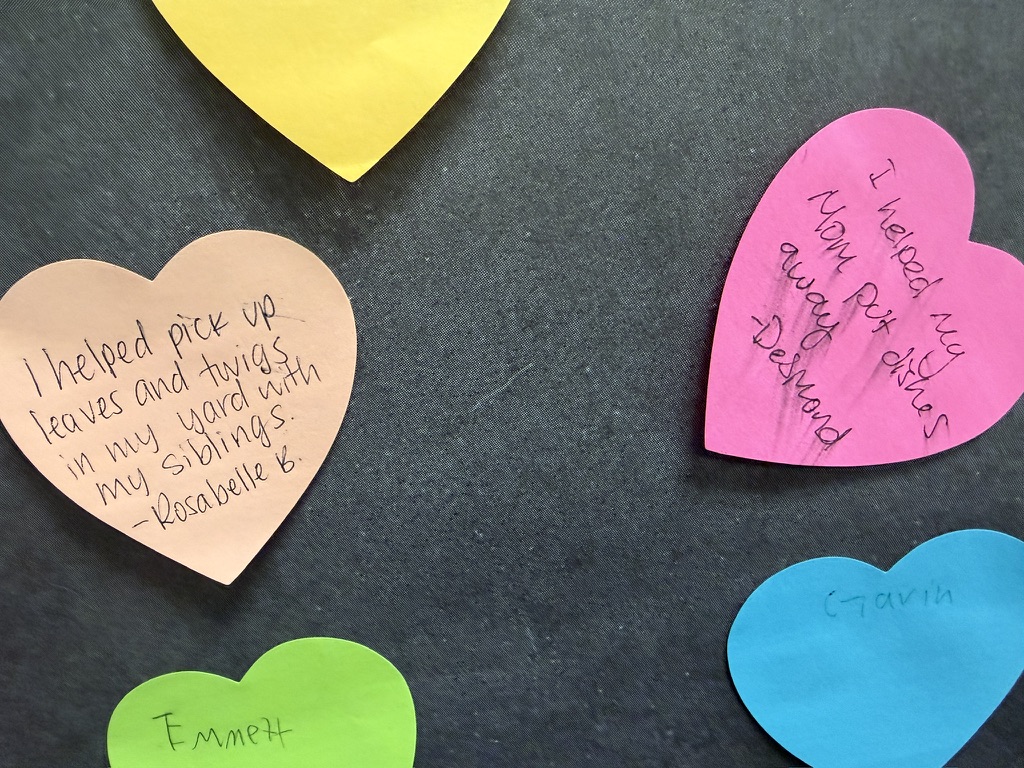 I helped pick up
leaves and twigs
in my yard with
my siblings.
-Rosabelle B.
I helped my
Mom put dishes
away
-Desmond
Gavin
Emmett